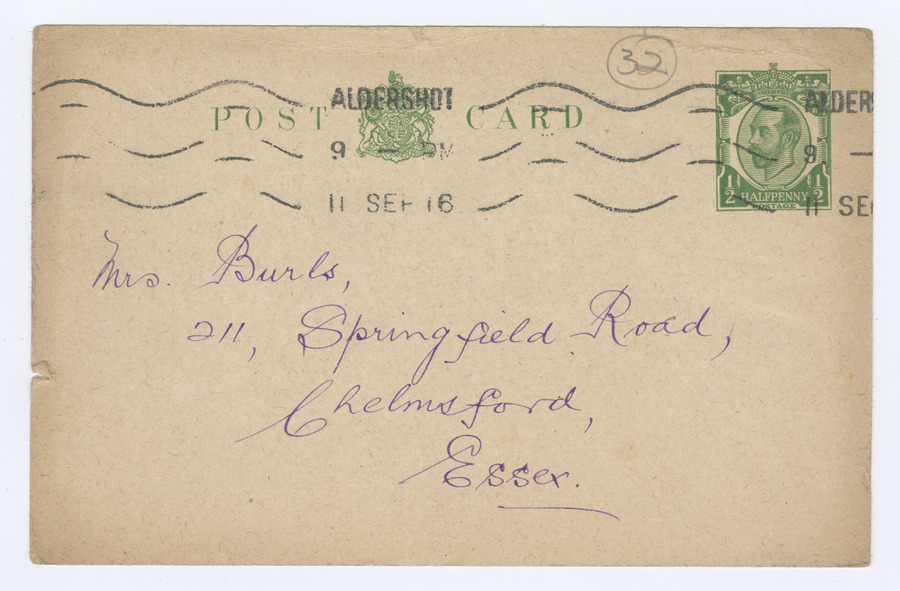 32
POST CARD
ALDERSHOT
9 - PM
11 SEP 16
ALDERS
9 -
11 SE
1/2 HALFPENNY 1/2
POSTAGE
Mrs. Burls,
211, Springfield Road,
Chelmsford,
Essex.